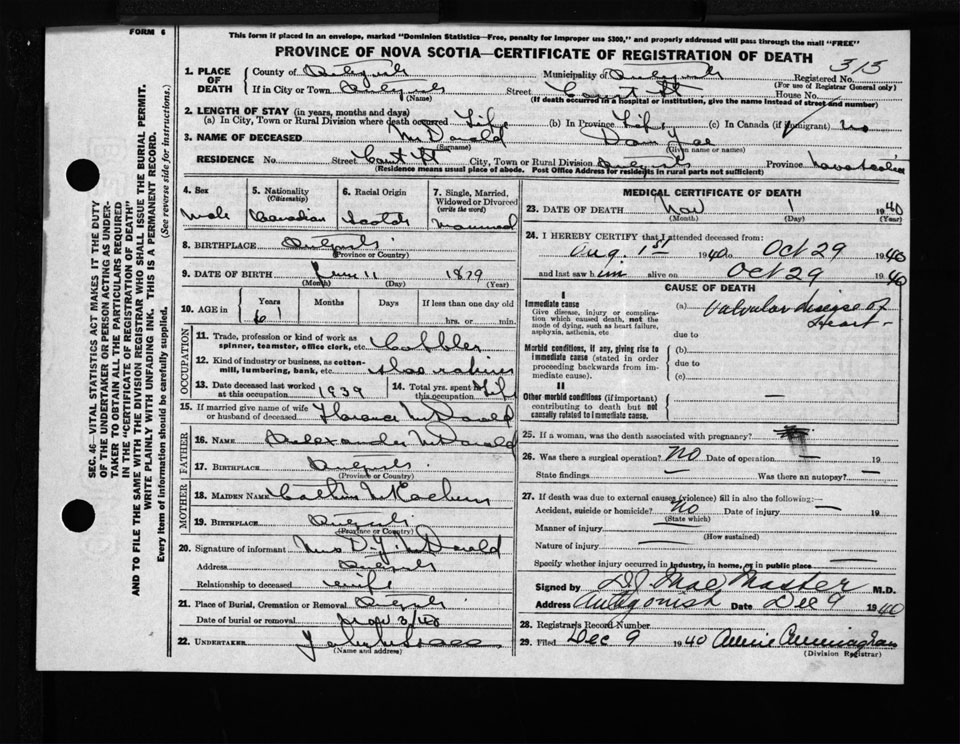 FORM 6
This form if placed in an envelope, marked "Dominion Statistics—Free, penalty for improper use $300," and properly addressed will pass through the mail "FREE"
PROVINCE OF NOVA SCOTIA—CERTIFICATE OF REGISTRATION OF DEATH
315
1. PLACE OF DEATH { County of Municipality of Registered No.
(For use of Registrar General only)
If in City or Town Street Court St House No.
(Name) (If death occurred in a hospital or institution, give the name instead of street and number)
2. LENGTH OF STAY (in years, months and days)
(a) In City, Town or Rural Division where death occurred Life (b) In Province Life (c) In Canada (if immigrant) no
3. NAME OF DECEASED McDonald Dan
(Surname) (Given name or names)
RESIDENCE No. Street Court St City, Town or Rural Division Province Nova Scotia
(Residence means usual place of abode. Post Office Address for residents in rural parts not sufficient)
4. Sex 5. Nationality (Citizenship) 6. Racial Origin 7. Single, Married, Widowed or Divorced (write the word)
Male Canadian Scotch Married
8. BIRTHPLACE
(Province or Country)
9. DATE OF BIRTH June 11 1879
(Month) (Day) (Year)
10. AGE in { Years Months Days If less than one day old
61 hrs. or min.
OCCUPATION
11. Trade, profession or kind of work as spinner, teamster, office clerk, etc. Cobbler
12. Kind of industry or business, as cotton-mill, lumbering, bank, etc.
13. Date deceased last worked at this occupation 1939 14. Total yrs. spent in this occupation Life
15. If married give name of wife or husband of deceased Florence McDonald
FATHER
16. NAME Alexander McDonald
17. BIRTHPLACE
(Province or Country)
MOTHER
18. MAIDEN NAME
19. BIRTHPLACE
(Province or Country)
20. Signature of informant Mrs D. J. McDonald
Address
Relationship to deceased wife
21. Place of Burial, Cremation or Removal
Date of burial or removal Nov 3/40
22. UNDERTAKER
(Name and address)
MEDICAL CERTIFICATE OF DEATH
23. DATE OF DEATH Nov 1 1940
(Month) (Day) (Year)
24. I HEREBY CERTIFY that I attended deceased from:
Aug. 1st 1940 to Oct 29 1940
and last saw him alive on Oct 29 1940
CAUSE OF DEATH
I
Immediate cause (a) Valvular disease of Heart —
Give disease, injury or complication which caused death, not the mode of dying, such as heart failure, asphyxia, asthenia, etc. due to
Morbid conditions, if any, giving rise to immediate cause (stated in order proceeding backwards from immediate cause). (b) —
due to
(c)
II
Other morbid conditions (if important) contributing to death but not causally related to immediate cause. —
25. If a woman, was the death associated with pregnancy?
26. Was there a surgical operation? NO Date of operation — 19
State findings — Was there an autopsy? —
27. If death was due to external causes (violence) fill in also the following:—
Accident, suicide or homicide? NO Date of injury — 19
(State which)
Manner of injury —
(How sustained)
Nature of injury —
Specify whether injury occurred in industry, in home, or in public place —
Signed by MacMaster M.D.
Address Antigonish Date Dec 9 1940
28. Registrar's Record Number
29. Filed Dec 9 1940 Annie Cunningham
(Division Registrar)
SEC. 46—VITAL STATISTICS ACT MAKES IT THE DUTY
OF THE UNDERTAKER OR PERSON ACTING AS UNDER-
TAKER TO OBTAIN ALL THE PARTICULARS REQUIRED
IN THE "CERTIFICATE OF REGISTRATION OF DEATH"
AND TO FILE THE SAME WITH THE DIVISION REGISTRAR WHO SHALL ISSUE THE BURIAL PERMIT.
WRITE PLAINLY WITH UNFADING INK. THIS IS A PERMANENT RECORD.
Every item of information should be carefully supplied. (See reverse side for instructions.)